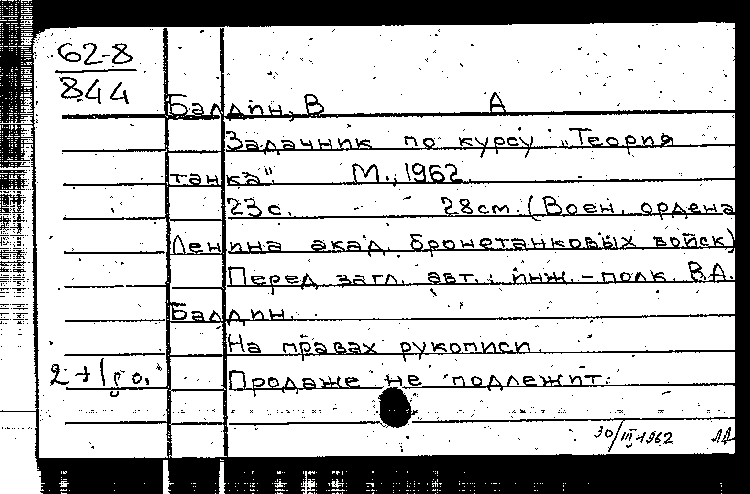 62-8
844
Балдин, В А
Задачник по курсу „Теория
танка". М., 1962.
23 с. 28 см. (Воен. ордена
Ленина акад. бронетанковых войск)
Перед загл. авт.: инж.-полк. В.А.
Балдин.
На правах рукописи
Продаже не подлежит.
30/III-1962